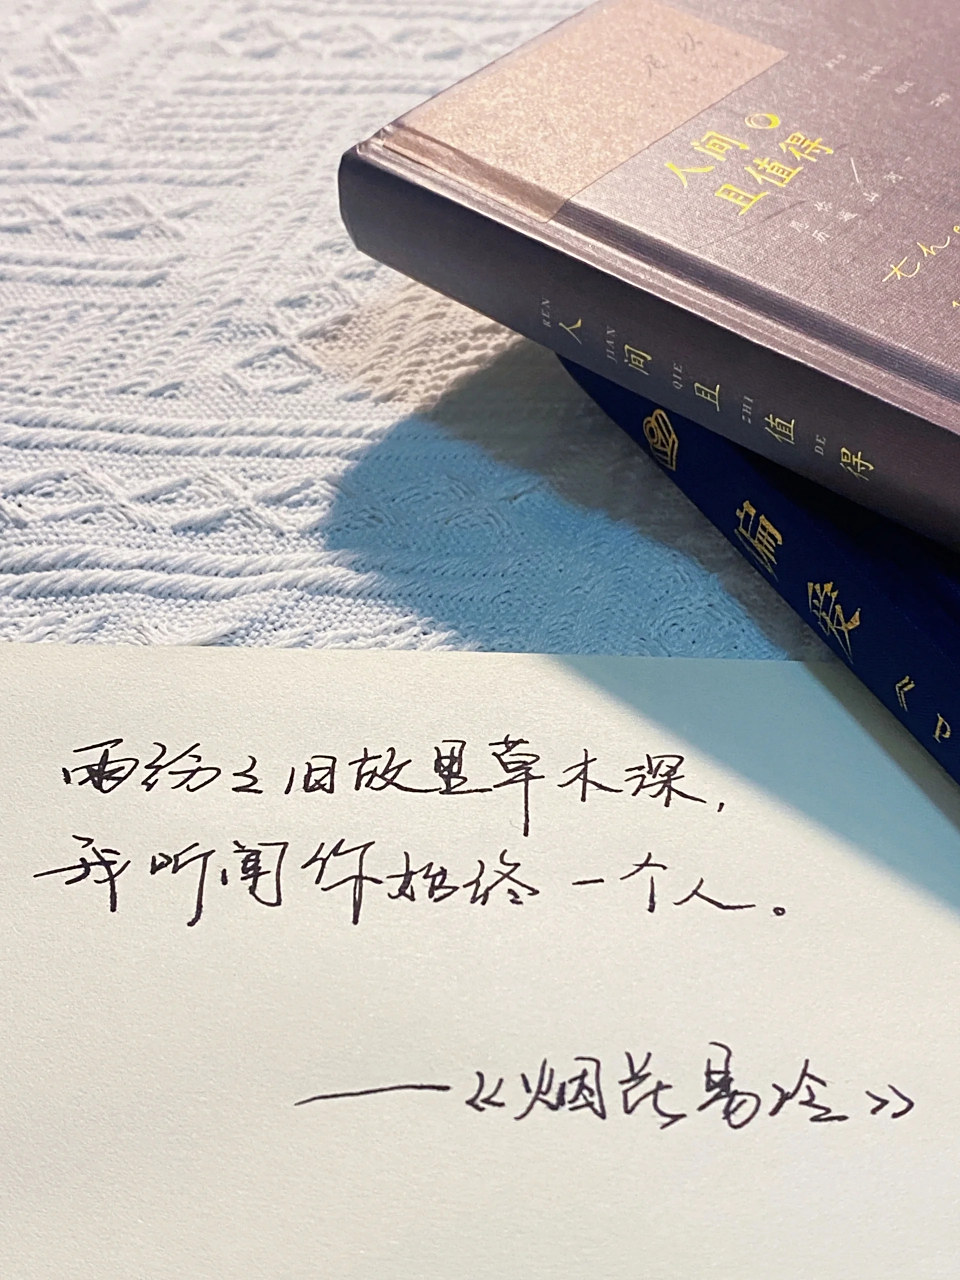 人间
且值得
REN 人 JIAN 间 QIE 且 ZHI 值 DE 得
偏爱
雨纷之旧故里草木深，
我听闻你始终一个人。
——《烟花易冷》